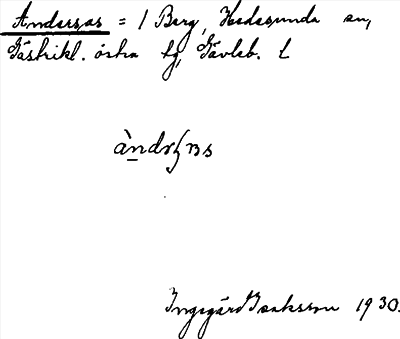 Anderssas = 1 Berg, Hedesunda sn,
Gästrikl. östra tg, Gävleb. L
Ingegärd Isaksson 1930.